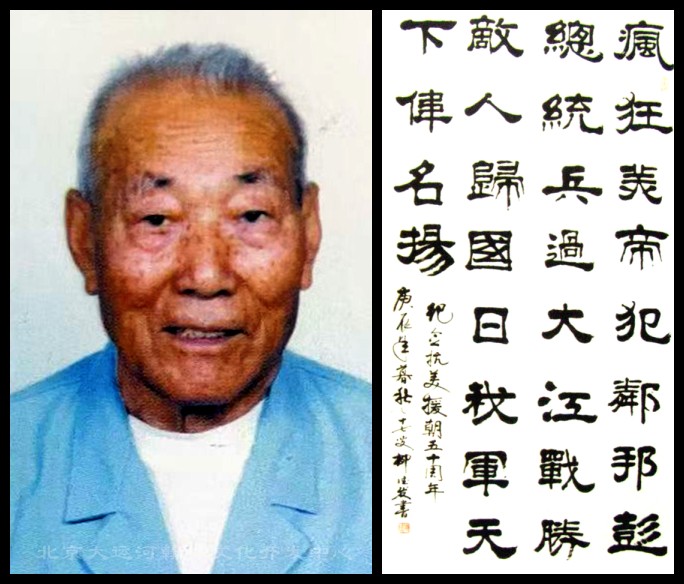 瘋狂美帝犯鄰邦彭
總統兵過大江戰勝
敵人歸國日我軍天
下偉名揚
紀念抗美援朝五十周年
庚辰暮秋七十七岁柳書
北京大运河文化中心